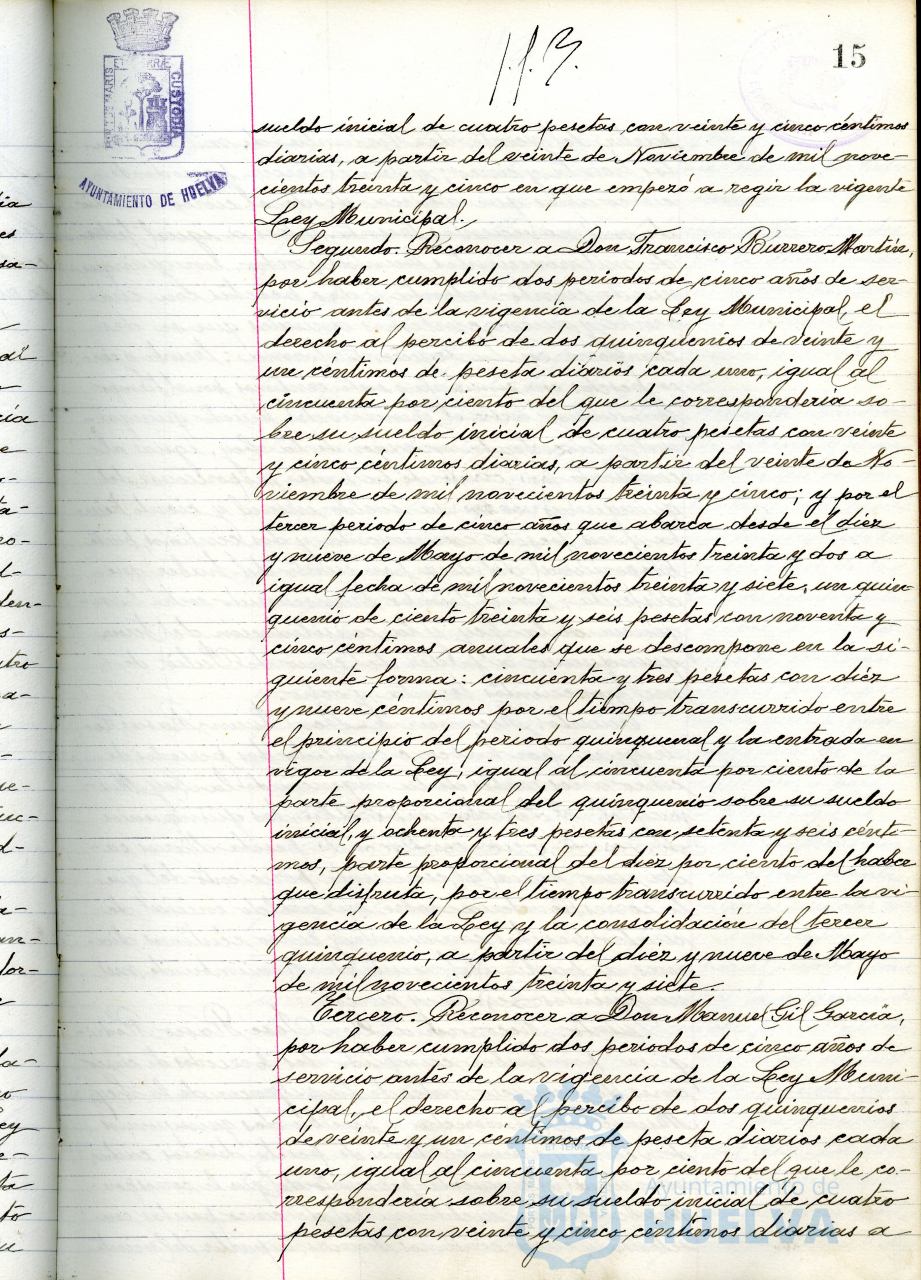 113.
15
PORTUS MARIS ET TERRÆ CUSTODIA
AYUNTAMIENTO DE HUELVA
sueldo inicial de cuatro pesetas con veinte y cinco céntimos
diarias, a partir del veinte de Noviembre de mil nove-
cientos treinta y cinco en que empezó a regir la vigente
Ley Municipal.
Segundo. Reconocer a Don Francisco Burrero Martín,
por haber cumplido dos periodos de cinco años de ser-
vicio antes de la vigencia de la Ley Municipal, el
derecho al percibo de dos quinquenios de veinte y
un céntimos de peseta diarios cada uno, igual al
cincuenta por ciento del que le correspondería so-
bre su sueldo inicial de cuatro pesetas con veinte
y cinco céntimos diarias, a partir del veinte de No-
viembre de mil novecientos treinta y cinco; y por el
tercer periodo de cinco años que abarca desde el diez
y nueve de Mayo de mil novecientos treinta y dos a
igual fecha de mil novecientos treinta y siete, un quin-
quenio de ciento treinta y seis pesetas con noventa y
cinco céntimos anuales que se descompone en la si-
guiente forma: cincuenta y tres pesetas con diez
y nueve céntimos por el tiempo transcurrido entre
el principio del periodo quinquenal y la entrada en
vigor de la Ley, igual al cincuenta por ciento de la
parte proporcional del quinquenio sobre su sueldo
inicial, y ochenta y tres pesetas con setenta y seis cénti-
mos, parte proporcional del diez por ciento del haber
que disfruta, por el tiempo transcurrido entre la vi-
gencia de la Ley y la consolidación del tercer
quinquenio, a partir del diez y nueve de Mayo
de mil novecientos treinta y siete.
Tercero. Reconocer a Don Manuel Gil García,
por haber cumplido dos periodos de cinco años de
servicio antes de la vigencia de la Ley Muni-
cipal, el derecho al percibo de dos quinquenios
de veinte y un céntimos de peseta diarios cada
uno, igual al cincuenta por ciento del que le co-
rrespondería sobre su sueldo inicial de cuatro
pesetas con veinte y cinco céntimos diarias a
Ayuntamiento de
HUELVA